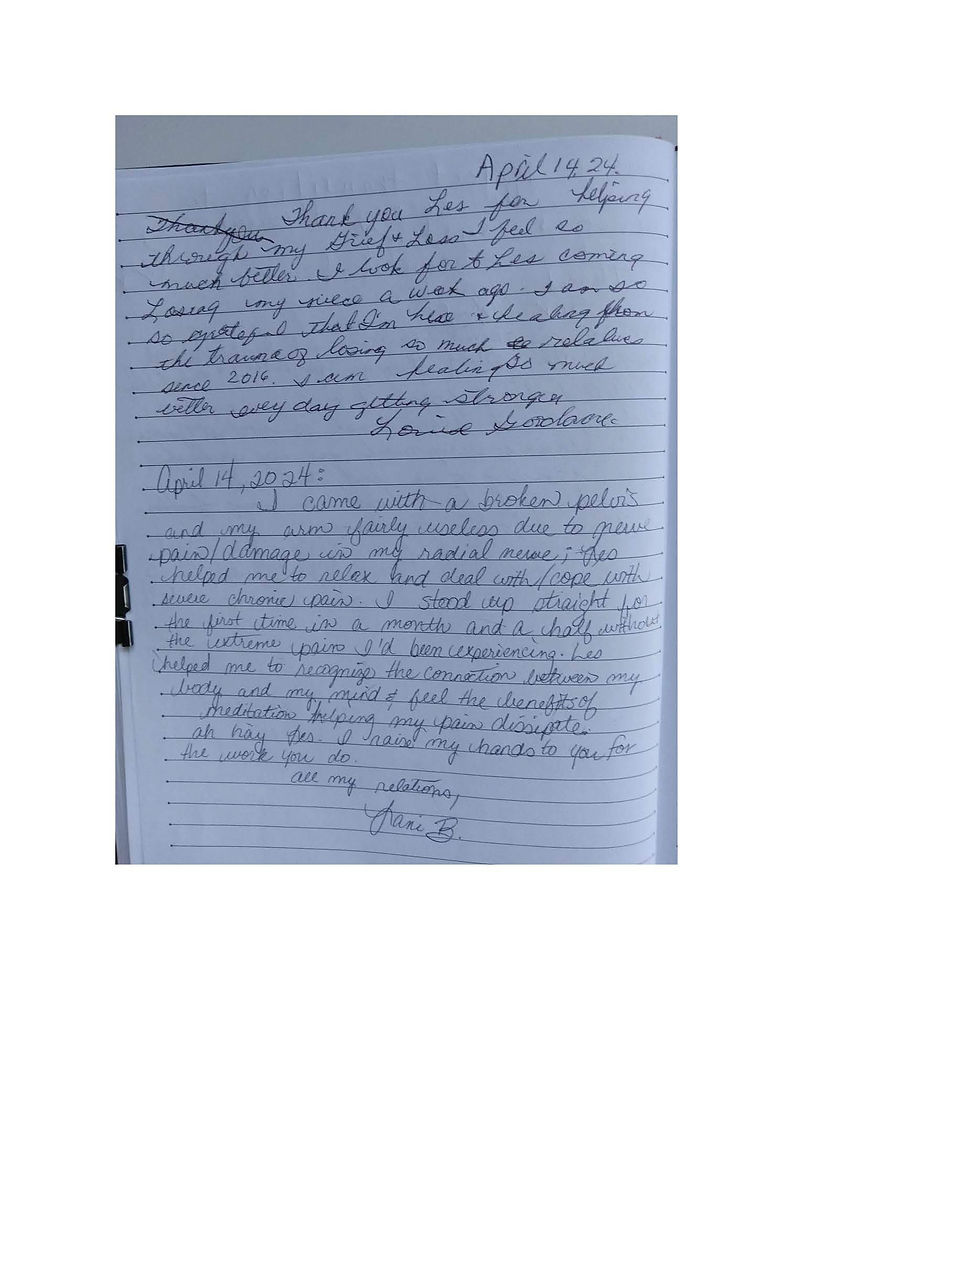 April 14, 24.
Thankyou Thank you Les for helping
through my Grief + Loss I feel so
much better. I look for to Les coming
Losing my niece a week ago. I am so
so grateful that I'm here + healing from
the trauma of losing so much relatives
since 2016. I am healing so much
better every day getting stronger
Louise
April 14, 2024:
I came with a broken pelvis
and my arm fairly useless due to nerve
pain/damage in my radial nerve; Les
helped me to relax and deal with/cope with
severe chronic pain. I stood up straight for
the first time in a month and a half without
the extreme pain I'd been experiencing. Les
helped me to recognize the connection between my
body and my mind & feel the benefits of
meditation helping my pain dissipate.
ah hay Les. I raise my hands to you for
the work you do.
all my relations,
B.